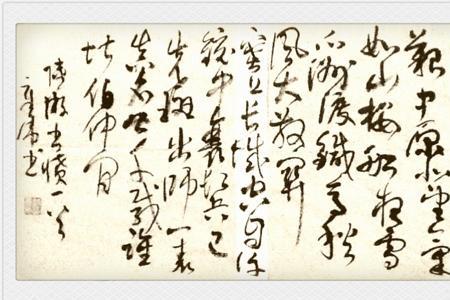 艱中原北望氣
如山樓船夜雪
瓜洲渡鐵馬秋
風大散關
塞上長城空自許
鏡中衰鬢已
先斑出師一表
真名世千載誰
堪伯仲間
陸游書憤一首
書